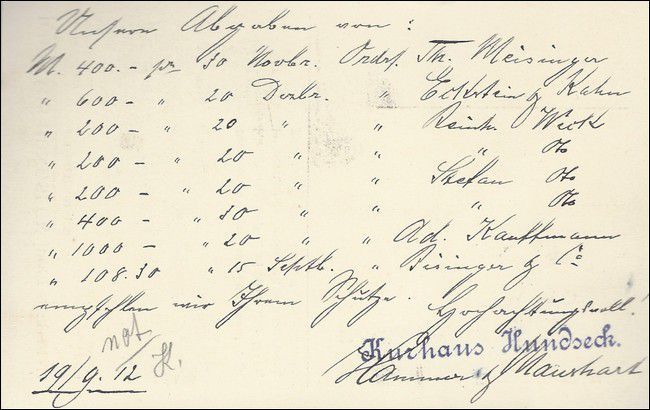 Unsere Abgaben von:
M. 400.- pr 30 Novbr. Ordr. Th. Meisinger
" 600 - " 20 Dezbr. " Eckstein & Kahn
" 200 - " 20 " " Reinh. Weck
" 200 - " 20 " " " do
" 200 - " 20 " " Stefan do
" 400 - " 30 " " " do
" 1000 - " 20 " " Ad. Kauffmann
" 108.30 " 15 Septb. " Bisinger & Co
empfehlen wir Ihrem Schutze. Hochachtungsvoll!
not
Kurhaus Hundseck.
19/9. 12 K. Hammer & Maushart